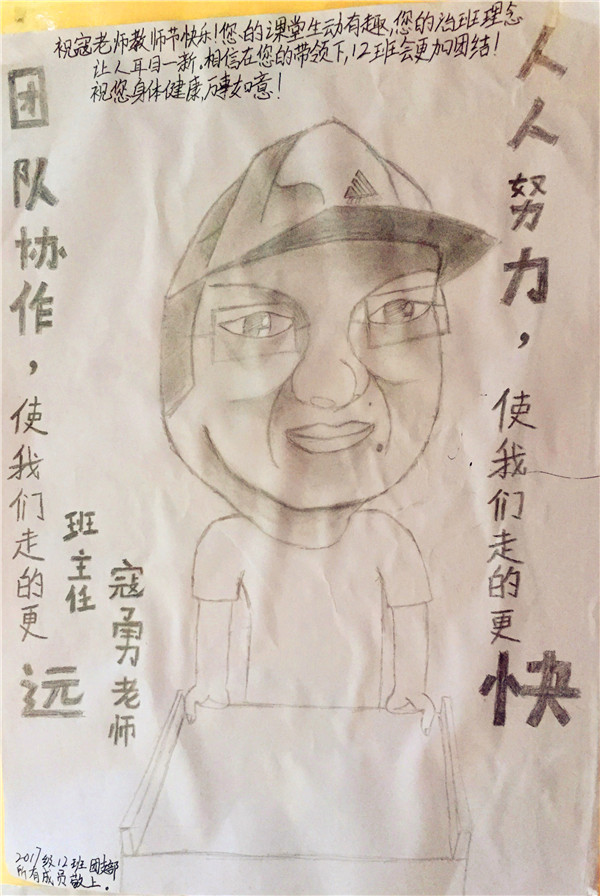 祝寇老师教师节快乐!您的课堂生动有趣,您的治班理念
让人耳目一新,相信在您的带领下,12班会更加团结!
祝您身体健康,万事如意!
人人努力,使我们走的更快
团队协作,使我们走的更远
班主任
寇勇老师
2017级12班团支部
所有成员敬上.